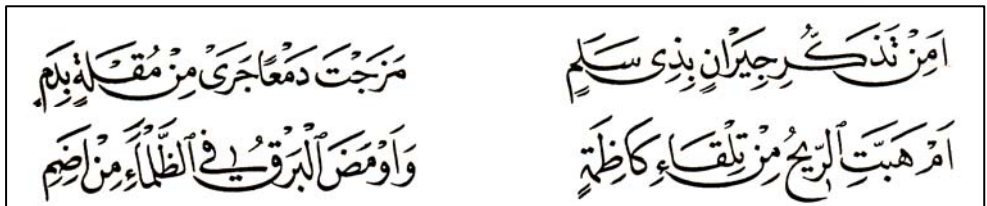 اَمِنْ تَذَكُّرِ جِيرَانٍ بِذِى سَلَمٍ مَزَجْتَ دَمْعًا جَرَىٰ مِنْ مُقْلَةٍ بِدَمٍ
اَمْ هَبَّتِ الرِّيحُ مِنْ تِلْقَاءِ كَاظِمَةٍ وَاَوْمَضَ الْبَرْقُ فِي الظَّلْمَاءِ مِنْ اِضَمِ